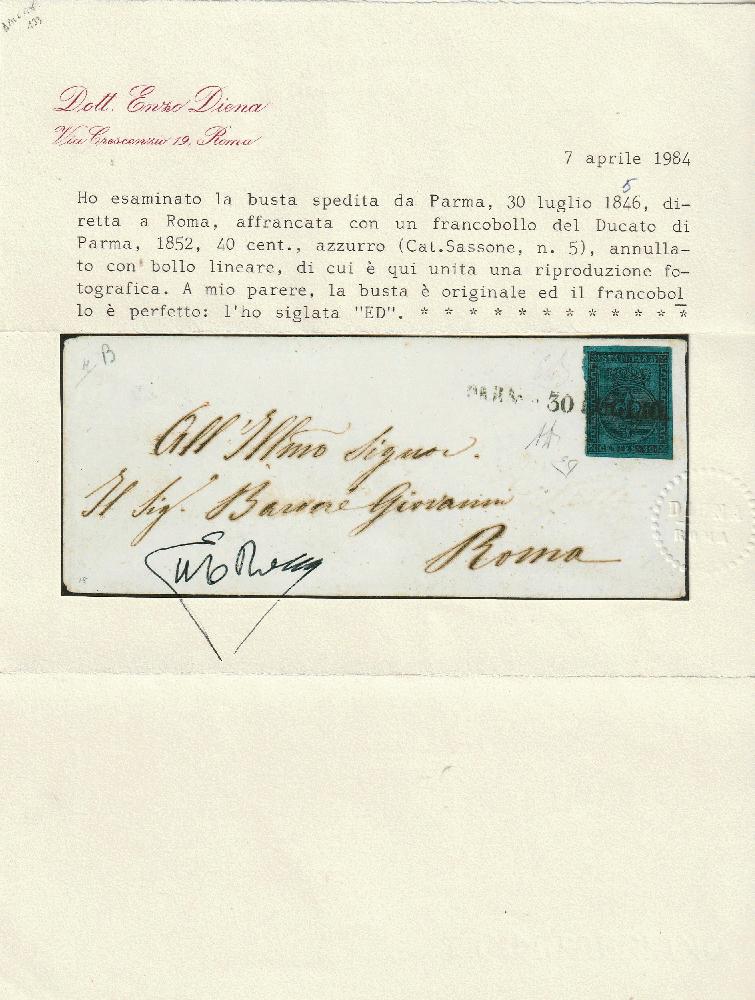 Dott. Enzo Diena
Via Crescenzio 19, Roma
7 aprile 1984
5
Ho esaminato la busta spedita da Parma, 30 luglio 1846, di-
retta a Roma, affrancata con un francobollo del Ducato di
Parma, 1852, 40 cent., azzurro (Cat.Sassone, n. 5), annulla-
to con bollo lineare, di cui è qui unita una riproduzione fo-
tografica. A mio parere, la busta è originale ed il francobol
lo è perfetto: l'ho siglata "ED". * * * * * * * * * * * *
B
PARMA 30 LUGLIO
All'Illmo Signor.
Il Sig. Barone Giovanni
Roma
DIENA
ROMA